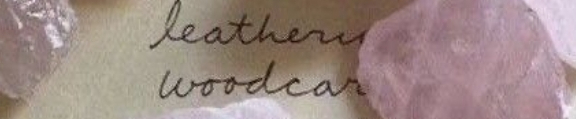 leatheru
woodcar